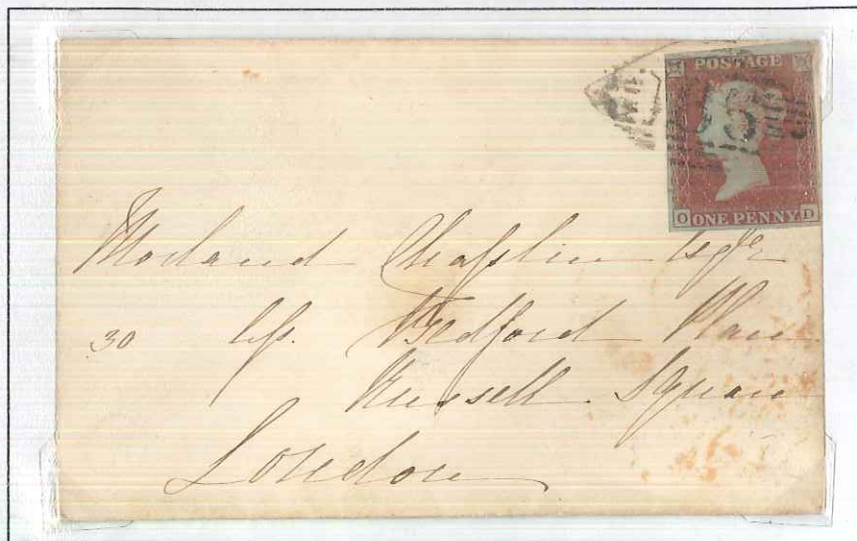 POSTAGE
ONE PENNY
O D
Morland Chaplin Esqre
30 Up. Bedford Place
Russell Square
London